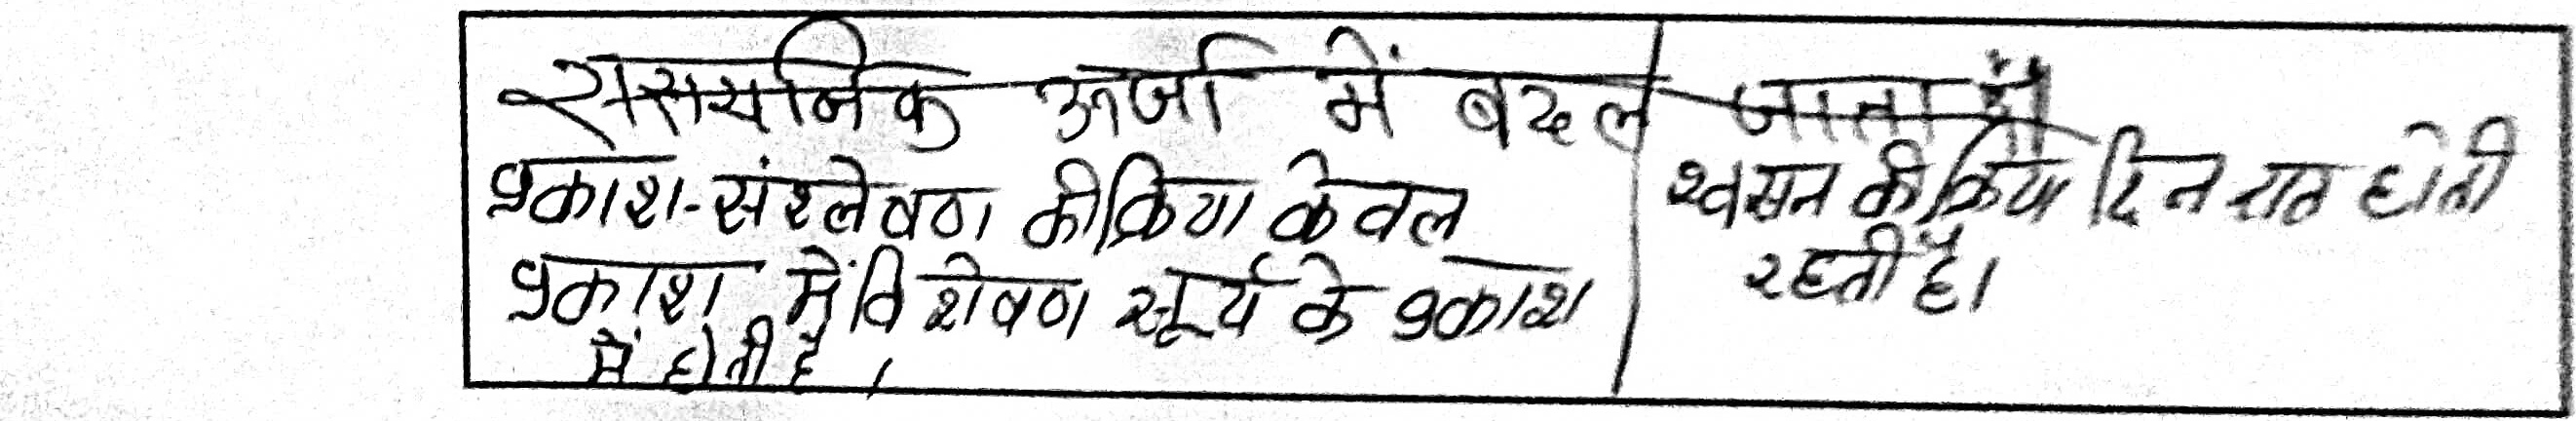 रासयनिक ऊर्जा में बदल जाता हैं
प्रकाश-संश्लेषण की क्रिया केवल
प्रकाश में विशेषण सूर्य के प्रकाश
में होती है।
श्वसन की क्रिया दिन रात होती
रहती है।